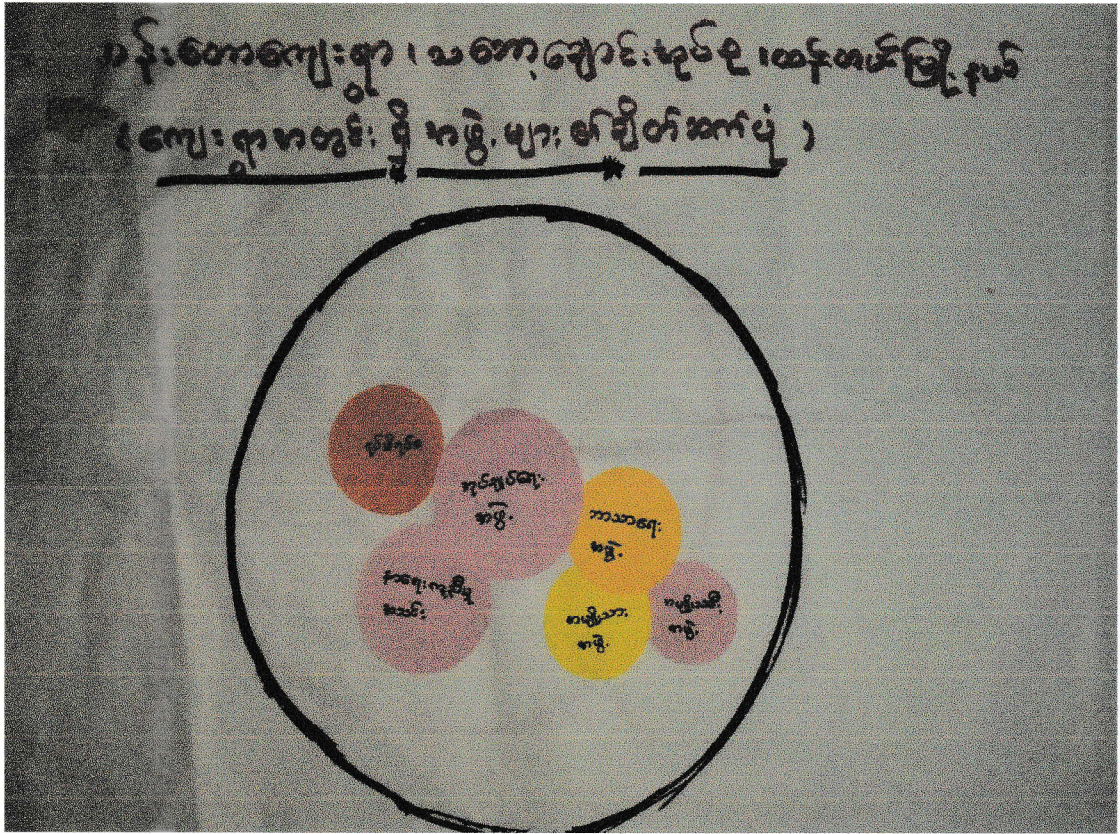 ကန်းတောကျေးရွာ ၊ သဘော့ချောင်းအုပ်စု ၊ ထန်းတပင်မြို့နယ်
( ကျေးရွာအတွင်း ရှိ အဖွဲ့များ ၏ ချိတ်ဆက်ပုံ )
ရပ်မိရပ်ဖ
အုပ်ချုပ်ရေး
အဖွဲ့
ဘာသာရေး
အဖွဲ့
နာရေးကူညီမှု
အသင်း
အမျိုးသား
အဖွဲ့
အမျိုးသမီး
အဖွဲ့